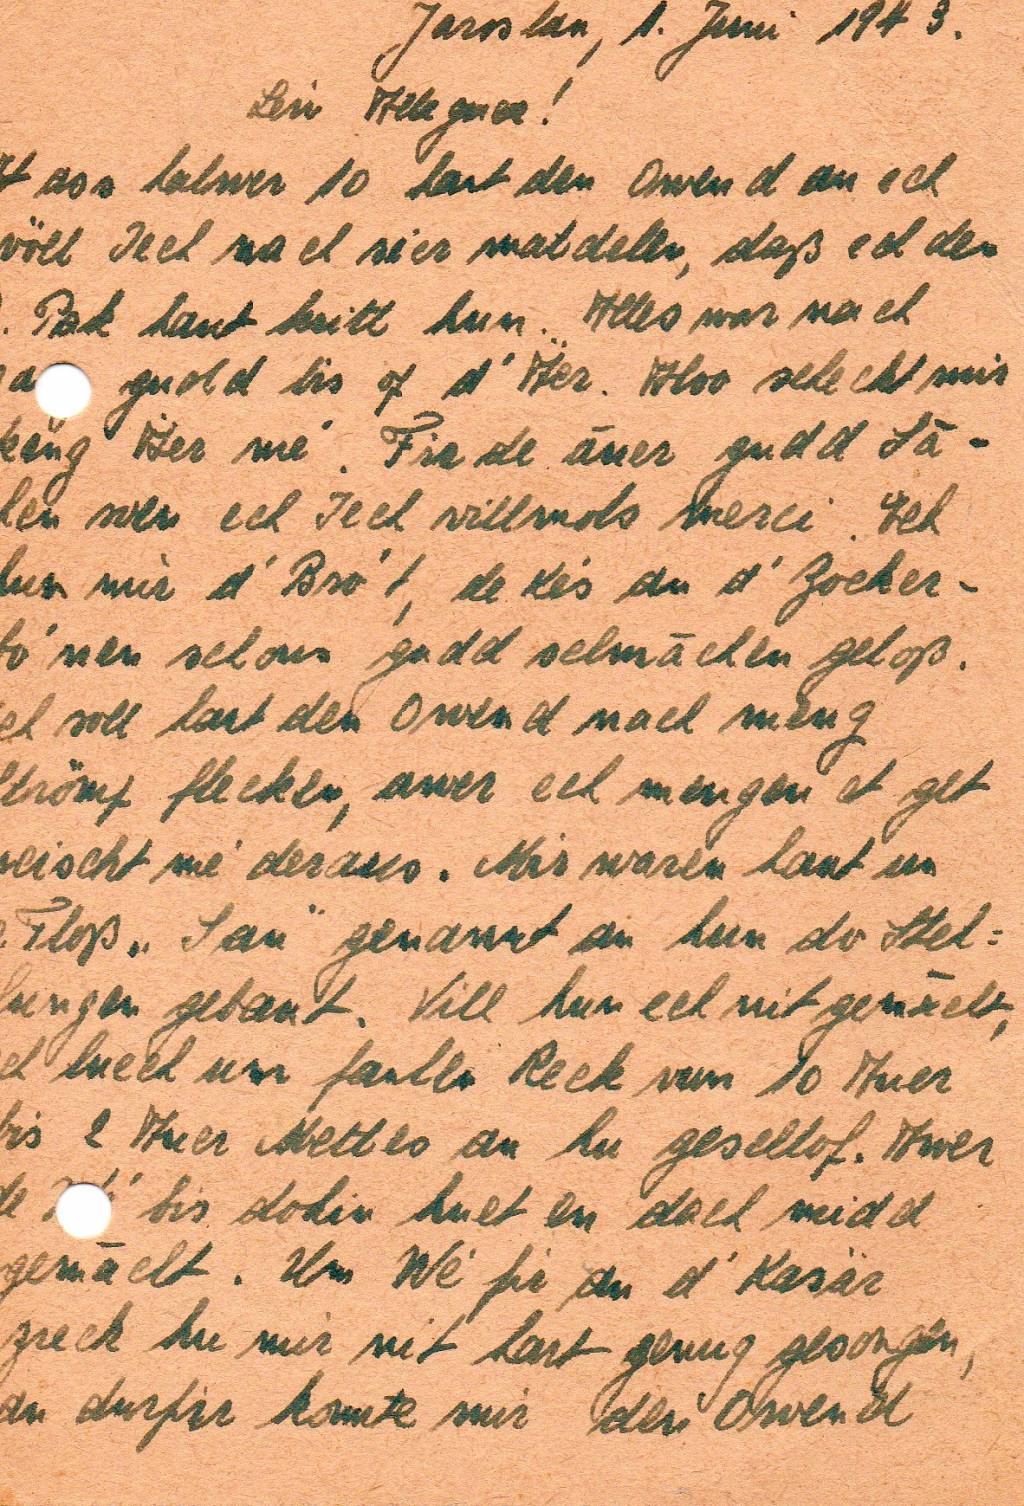 Jaroslau, 1. Juni 1943.
Lew Alleguer!
Et ass halwer 10 haut den Owend an ech
wöll Iech nach sier matdelen, daß ech den
. Pak haut kritt hun. Alles war nach
guold bis of d' Äer. Aloo schecht mir
keng Äer mé. Fir de äner gudd Sä-
hen soen ech Iech villmols merci. Ech
hun mir d' Bro't, de Kés an d' Zocker-
bo'nen schonn gudd schmāchen geloß.
ech soll haut den Owend nach meng
Strömp flecken, awer ech mengen et get
neischt mé deraus. Mir waren haut un
e Floß „San" genannt an hun do Stel-
lungen gebaut. Vill hun ech nit gemācht,
ech luech um faulen Reck vun 10 Auer
bis 2 Auer Mettes an hu geschlof. Awer
de bis dohin huet en dach midd
gemācht. Um Wé fir an d' Kasär
zreck hu mir nit hart genug gesongen,
an durfir konnte mir den Owend